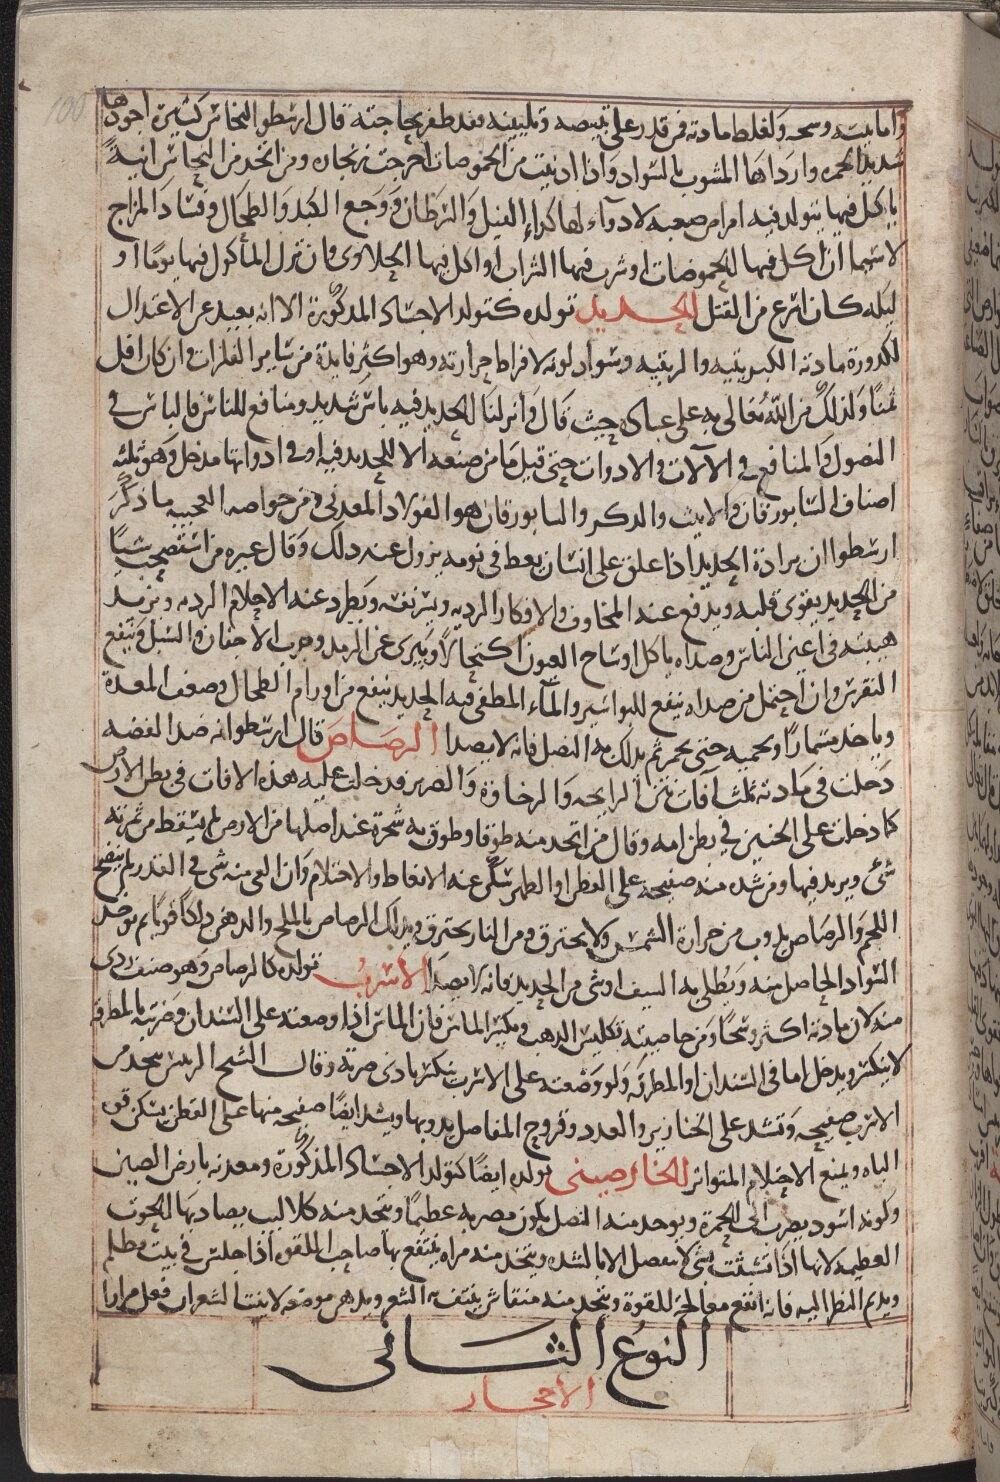 واما يبسه وسحه ولغلط مادته فمن قدر على تبيضه وتليينه فقد ظفر بحاجته قال ارسطو النحاس كثيرة اجودها
شديد الحمره واردأها المشوب بالسواد واذا ادنيت من الحموضات اخرجت زنجاره ومن اتخذ من النحاس انية
ياكل فيها يتولد فيه امراض صعبه لا دواء لها كداء الفيل والسرطان ووجع الكبد والطحال وفساد المزاج
لا سيما ان اكل فيها الحموضات او شرب فيها الشراب او اكل فيها الحلاوى وان ترك المأكول فيها يوما او
ليله كان اسرع من القتل الحديد تولده كتولد الاجساد المذكورة الا انه بعيد عن الاعتدال
لكدورة مادته الكبريتيه والزيبقيه وسواد لونه لافراط حرارته وهو اكثر فايدة من ساير الفلزات وان كان اقل
ثمنا ولذلك من الله تعالى به على عباده حيث قال وانزلنا الحديد فيه باس شديد ومنافع للناس فالباس في
النصول والمنافع في الآلات والادوات حتى قيل ما من صنعه الا للحديد فيها او في ادواتها مدخل وهو ثلثه
اصناف السابورقان والانيث والذكر والسابورقان هو الفولاد المعدني ومن خواصه العجيبه ما ذكر
ارسطو ان برادة الحديد اذا علق على انسان يغط في نومه يزول عنه ذلك وقال غيره من استصحب شيئا
من الحديد يقوى قلبه ويدفع عنه المخاوف والافكار الرديه ويسر نفسه ويطرد عنه الاحلام الرديه ويزيد
هيبته في اعين الناس وصداه ياكل اوساخ العيون اكتحالا ويبرى عن الرمد وجرب الاجفان والسبل وينفع
النقرس وان احتمل من صداه ينفع للبواسير والماء المطفى فيه الحديد ينفع من اورام الطحال وضعف المعدة
وياخذ مسمارا ويحميه حتى يحمر ثم يدلك به النصل فانه لا يصدا الرصاص قال ارسطو انه ضد الفضه
دخلت في مادته ثلث آفات نتن الرايحه والرخاوة والصرير فدخلت عليه هذه الافات في بطن الارض
كما دخلت على الجنين في بطن امه وقال من اتخذ منه طوقا وطوق به شجرة عند اصلها من الارض لم يسقط من ثمرته
شئ ويزيد فيها ومن شد منه صفيحة على القطن او الظهر سكن عنه الانعاظ والاحتلام وان القى منه شئ في القدر لم ينضج
اللحم والرصاص يذوب من حرارة الشمس ولا يحترق ومن النار يحترق ويدلك الرصاص بالملح والدهن دلكا قويا ثم يوخذ
السواد الحاصل منه ويطلى به السيف او شئ من الحديد فانه لا يصدا الاسرب تولده كالرصاص وهو صنف ردى
منه لان مادته اكثر وسخا ومن خاصيته تكليس الذهب وتكسير الماس فان الماس اذا وضعته على السندان وضربته بالمطرقه
لا ينكسر ويدخل اما في السندان او المطرقه ولو وضعته على الاسرب ينكسر بادنى ضربة وقال الشيخ الريس يتخذ من
الاسرب صفيحه وتشد على الخنازير والغدد وقروح المفاصل يذوبها ويشد ايضا صفيحه منها على القطن يسكن قوه
الباه ويمنع الاحتلام المتواتر الخارصينى تولده ايضا كتولد الاجساد المذكورة ومعدنه بارض الصين
ولونه اسود يضرب الى الحمرة ويوخذ منه النصل يكون مضربه عظيما ويتخذ منه كلاليب يصاد بها الحوت
العظيمه لانها اذا تشبثت بشئ لا ينفصل الا بالشده ويتخذ منه مراه ينتفع بها صاحب اللقوه اذا جلس في بيت مظلم
ويديم النظر اليه فانه انفع معالجة للقوة ويتخذ منه منقاش ينتف به الشعر ويدهن موضعه لا ينبت الشعر ان فعل مرارا
النوع الثاني
الاحجار
100